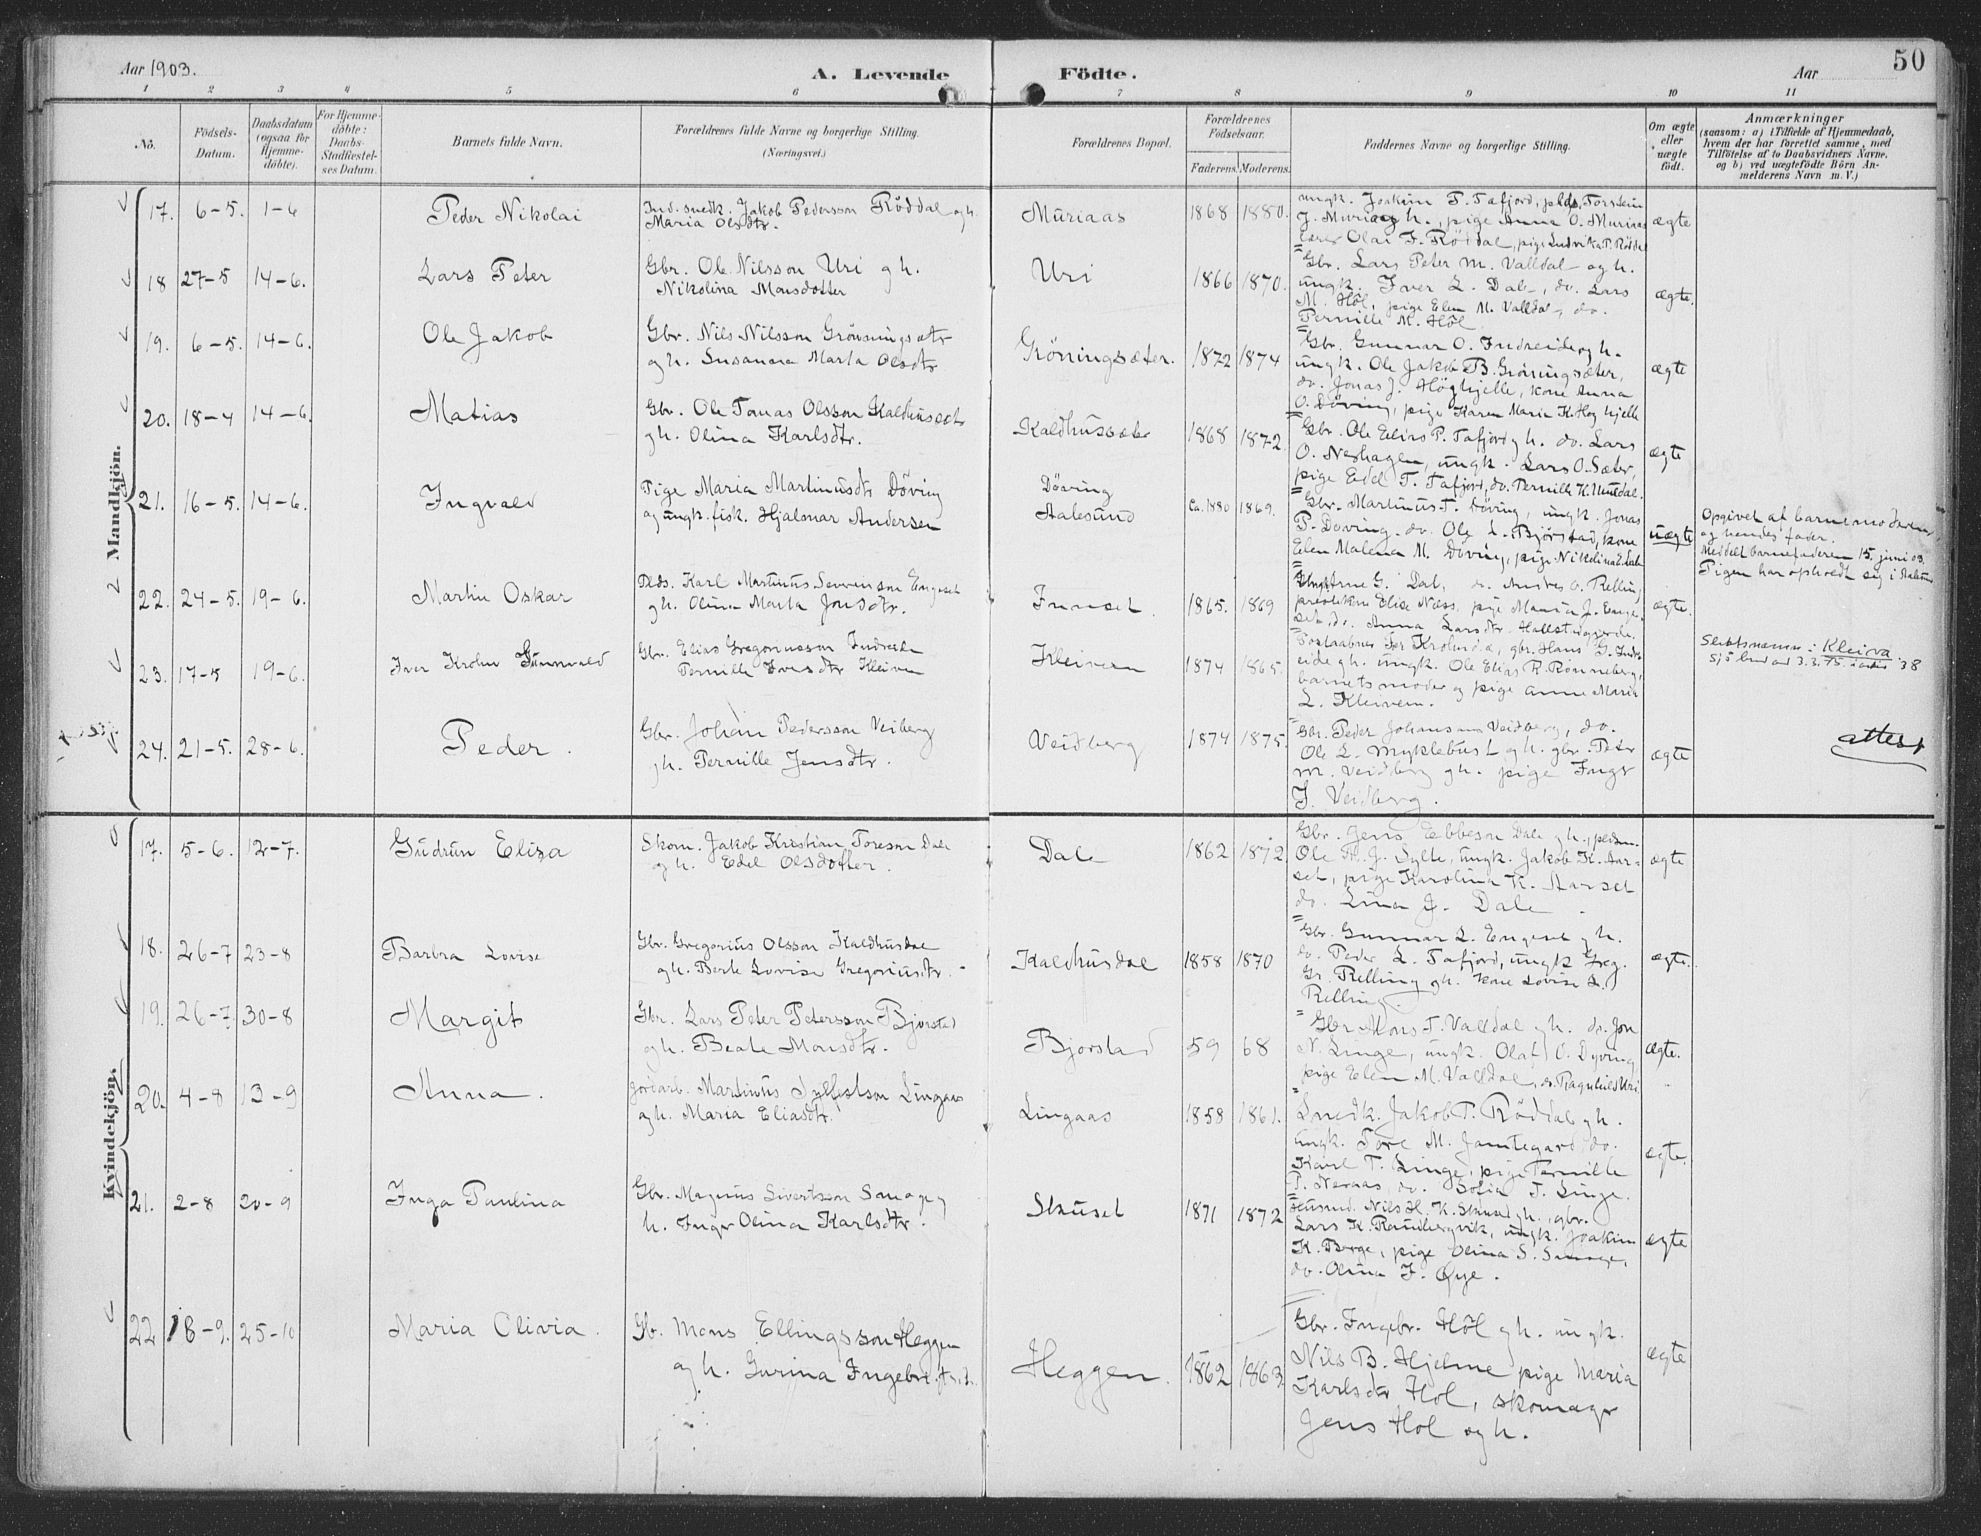 50
Aar 1903.
A. Levende
Födte.
Aar
1 2 3 4 5 6 7 8 9 10 11
No.
Födsels-Datum.
Daabsdatum (ogsaa for Hjemme-döbte).
For Hjemme-döbte: Daabs-Stadfæstel-ses Datum.
Barnets fulde Navn.
Forældrenes fulde Navne og borgerlige Stilling.
(Næringsvei.)
Forældrenes Bopæl.
Forældrenes Födselsaar.
Faderens. Moderens.
Faddernes Navne og borgerlige Stilling.
Om ægte eller uægte födt.
Anmærkninger
(saasom: a) i Tilfælde af Hjemmedaab,
hvem der har forrettet samme, med
Tilföielse af to Daabsvidners Navne,
og b) ved uægtefödte Börn An-
melderens Navn m. V.)
Mandkjön.
17. 6-5. 1-6 Peder Nikolai
Ind. snedk. Jakob Pedersson Röddal og h.
Maria Olsdtr.
Muriaas 1868 1880.
ungk. Joakim P. Tafjord, Torstein
J. Muriaas og h., pige Anna O. Muriaas
lærer Olai F. Röddal, pige Ludvika P. Röddal
ægte
18 27-5 14-6. Lars Peter
Gbr. Ole Nilsson Uri og h.
Nikolina Monsdotter
Uri 1866 1870.
Gbr. Lars Peter M. Valldal og h.
ungk. Iver L. Dale, do. Lars
M. Höl, pige Elen M. Valldal, do.
Pernille M. Höl
ægte.
19. 6-5. 14-6. Ole Jakob
Gbr. Nils Nilsson Grönningsætr
og h. Susanna Marta Olsdtr
Gröningsæter. 1872 1874
Gbr. Gunnar O. Indreide og h.
ungk. Ole Jakob B. Gröningsæter,
do. Jonas J. Höghjelle, kone Anna
O. Döving, pige Karen Maria K. Høghjelle
ægte
20. 18-4 14-6. Matias
Gbr. Ole Tomas Olsson Kaldhusæter
og h. Olina Karlsdtr.
Kaldhusæter 1868 1872.
Gbr. Ole Elias P. Tafjord og h. do. Lars
O. Neshagen, ungk. Lars O. Sæter,
pige Edel T. Tafjord, do. Pernille K. Muldal.
ægte
21. 16-5. 14-6. Ingvald
Pige Maria Martinusdtr Döving
og ungk. fisk. Hjalmar Andersen
Döving
Aalesund Ca. 1880 1869.
Gbr. Martinus T. Döving, ungk. Jonas
P. Döving, do. Ole L. Bjørstad, kone
Elen Malena M. Döving, pige Nikolina E. Dale
uægte
Opgivet af barnemoderen,
og hendes fader.
Meddelt barnefaderen 15. juni 03.
Pigen har opholdt sig i Aalesund
22. 24-5. 19-6. Martin Oskar
Plds. Karl Martinus Severinson Engeset
og h. Olina Marta Jonsdtr.
Innset. 1865. 1869
Arne G. Dal, do. Andres O. Relling
Elise Næss, pige Maria J. Enge-
set, do. Anna Larsdtr. Hallstuggerde.
ægte.
23. 17-5 19-6. Iver Krohn Gunnvald
Gbr. Elias Gregoriusson Indreide
Pernille Iversdtr Kleiven
Kleiven 1874 1865.
gbr. Hans G. Indre
eide og h. ungk. Ole Elias R. Rønneberg,
barnets moder og pige Anne Maria
L. Kleiven.
Slektsnamn: Kleiva
38
24. 21-5. 28-6. Peder.
Gbr. Johan Pedersson Veiberg
og h. Pernille Jensdtr.
Veidberg 1874 1875.
Gbr. Peder Johansson Veidberg, do.
Ole L. Myklebust og h. gbr. Peter
M. Veidberg og h. pige Inger
J. Veidberg.
ægte
attest
Kvindekjön.
17. 5-6. 12-7. Gudrun Eliza
Skom. Jakob Kristian Toreson Dale
og h. Edel Olsdotter.
Dale 1862 1872.
Gbr. Jens Ebbeson Dale og h.,
Ole J. Sylte, ungk. Jakob K. Aar-
set, pige Karolina K. Aarset
do. Lina J. Dale.
ægte
18. 26-7 23-8 Barbra Lovise
Gbr. Gregorius Olsson Kaldhusdal
og h. Berte Lovise Gregoriusdtr.
Kaldhusdal 1858 1870
Gbr. Gunnar L. Engeset og h.
do. Peder L. Tafjord, ungk Greg.
Gr. Relling og h. kone Lovise L.
Relling.
ægte.
19. 26-7. 30-8 Margit
Gbr. Lars Peter Petersson Bjørstad
og h. Beate Monsdtr.
Bjorstad 59 68
Gbr Mons T. Valldal og h. do. Jon
N. Linge, ungk. Olaf O. Dyving
pige Elen M. Valldal, do. Ragnhild Uri
ægte.
20. 4-8 13-9 Anna.
Jordarb. Martinus Sylfestson Lingaas
og h. Maria Eliasdtr.
Lingaas 1858 1861.
Snedk. Jakob P. Röddal og h.
ungk. Tore M. Jamtegard do.
Karl T. Linge, pige Pernille
P. Neraas, do. Sofia T. Linge.
ægte.
21. 2-8 20-9 Inga Paulina
Gbr. Magnus Sivertsson Smoge og
h. Inger Olina Karlsdtr.
Skuset 1871 1872
Husmd. Nils H. K. Skuset og h., gbr.
Lars K. Raudbergvik, ungk. Joakim
K. Berge, pige Olina S. Smoge,
do. Olina F. Øye.
ægte
22 18-9. 25-10 Maria Olivia.
Gbr. Mons Ellingsson Heggen
og h. Gurina
Heggen. 1862 1863
Gbr. Ingebr. Höl og h. ungk.
Nils B. Hjelme pige Maria
Karlsdtr Höl, skomager
Jens Höl og h.
ægte